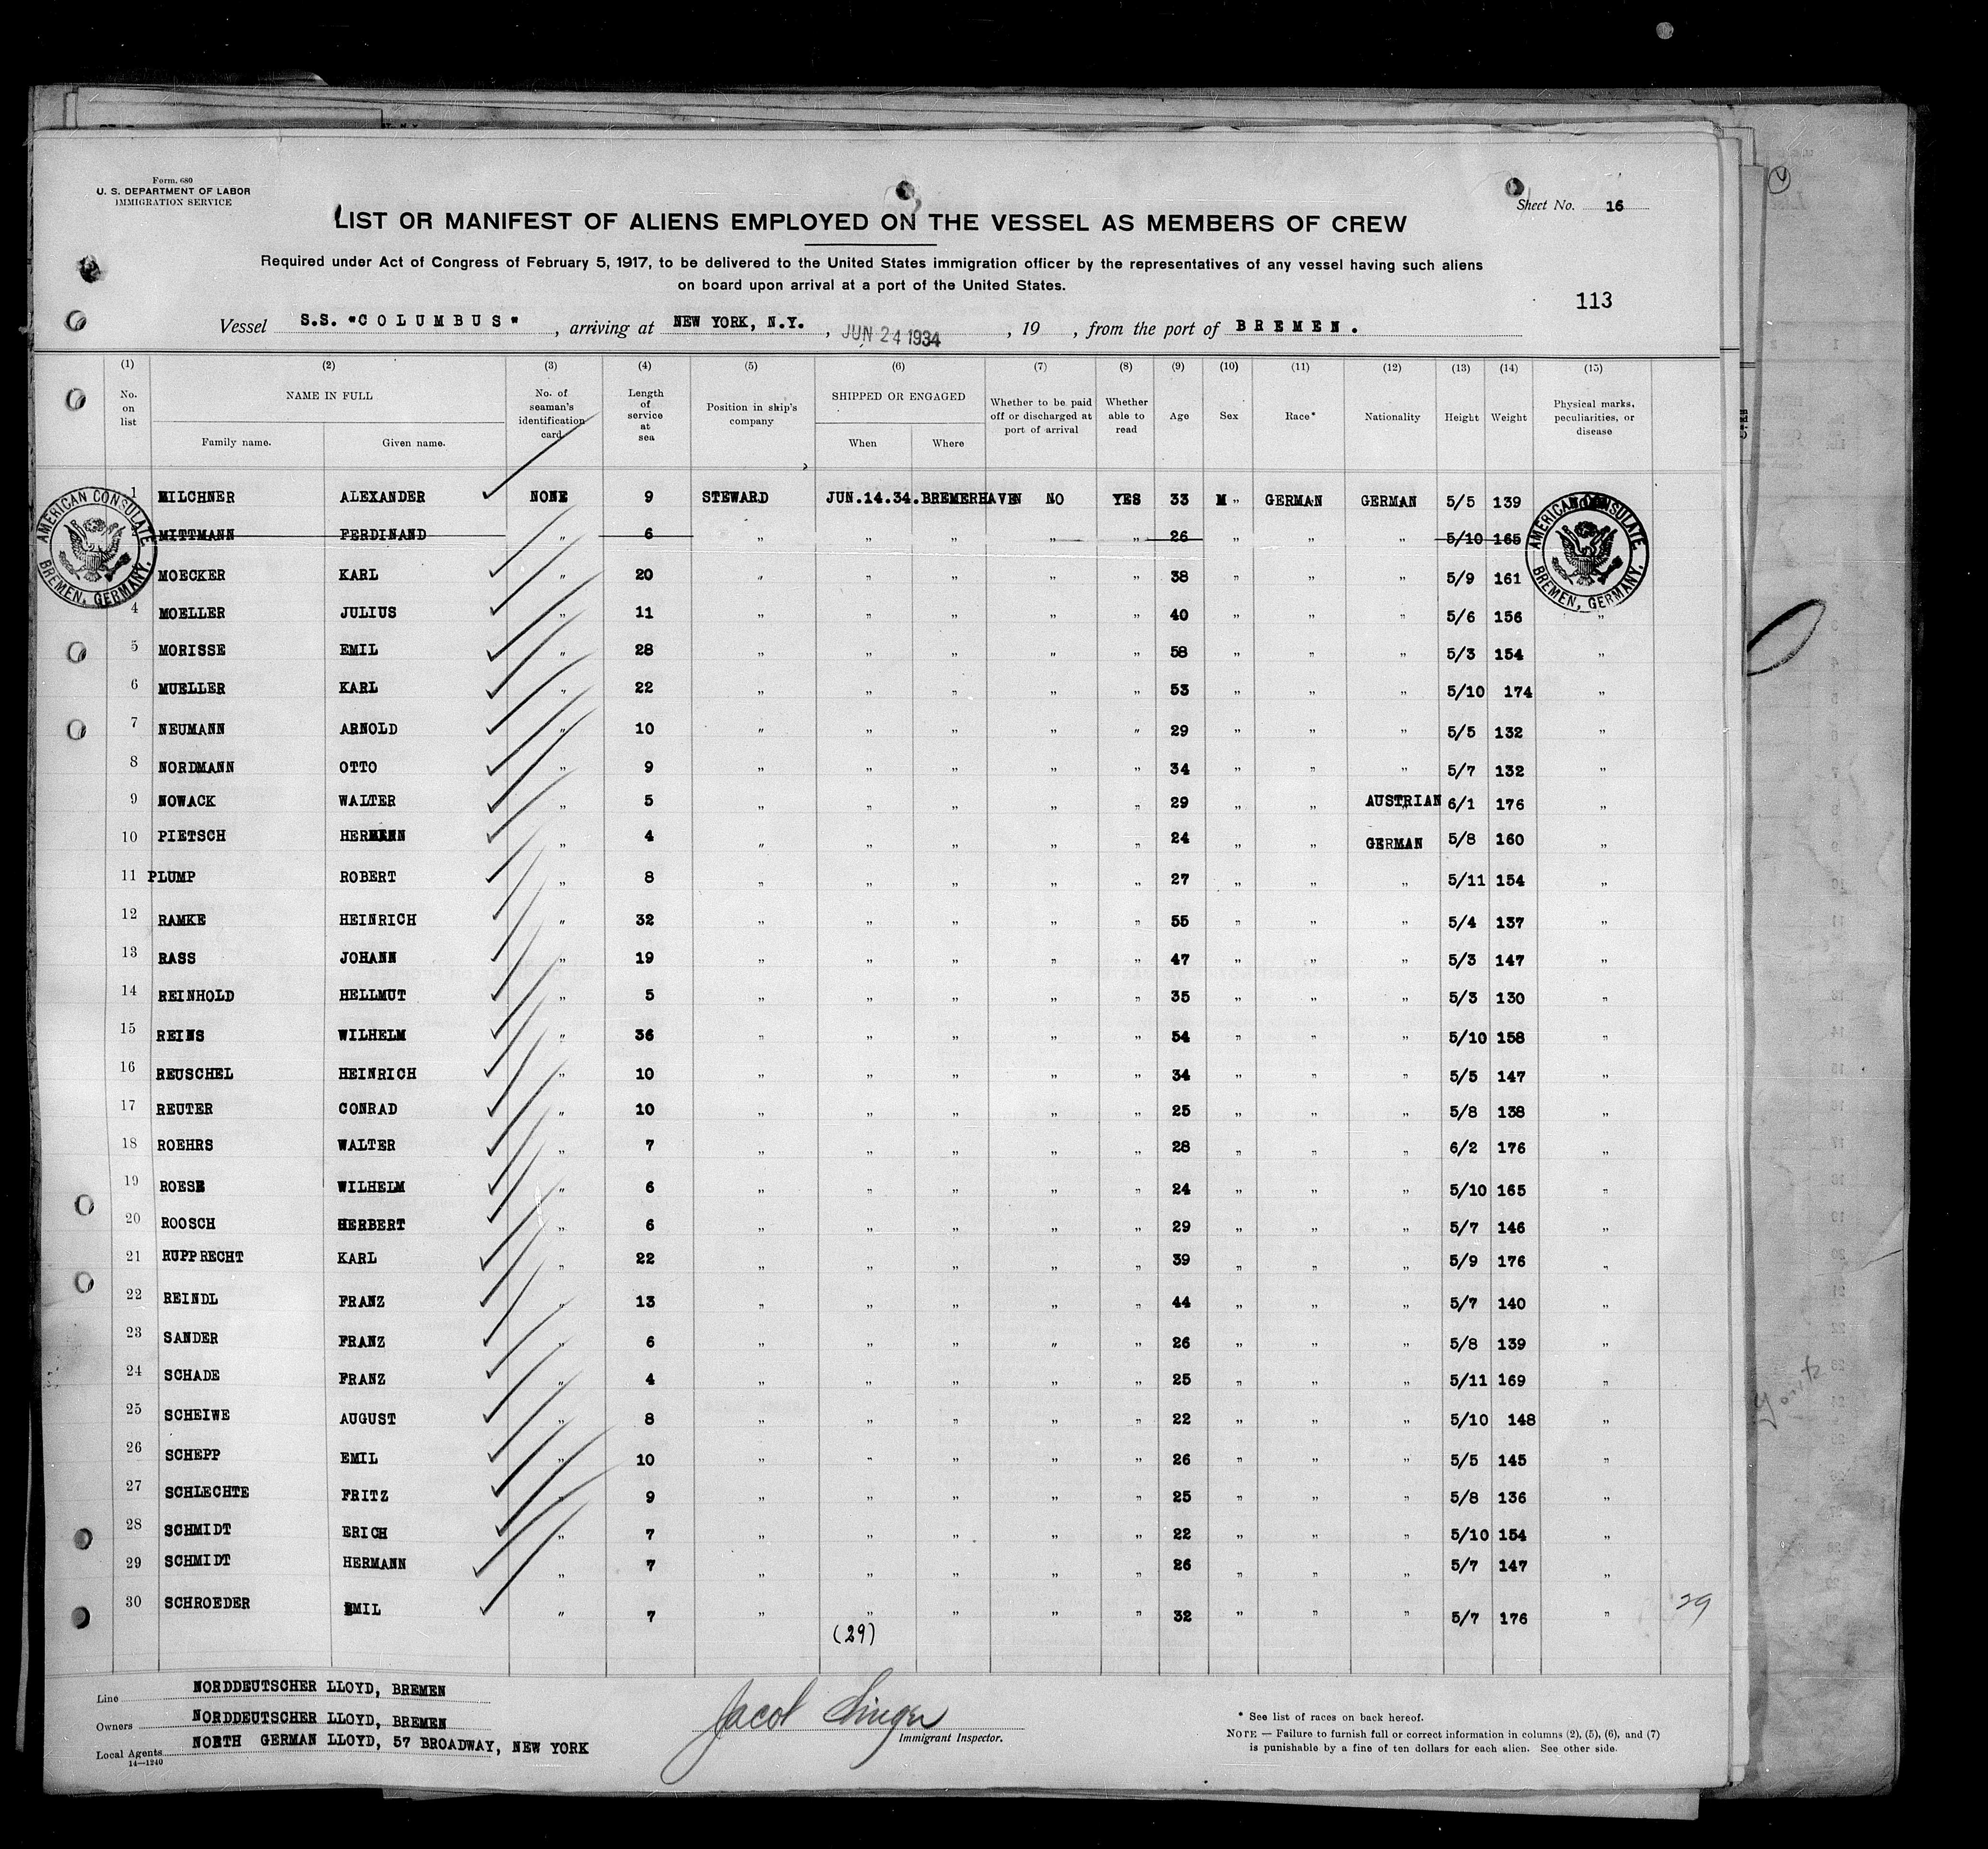 Form 680
U. S. DEPARTMENT OF LABOR
IMMIGRATION SERVICE
Sheet No. 16
LIST OR MANIFEST OF ALIENS EMPLOYED ON THE VESSEL AS MEMBERS OF CREW
Required under Act of Congress of February 5, 1917, to be delivered to the United States immigration officer by the representatives of any vessel having such aliens
on board upon arrival at a port of the United States.
113
Vessel S.S. "COLUMBUS" , arriving at NEW YORK, N.Y. , JUN 24 1934 , 19 , from the port of BREMEN.
(1) (2) (3) (4) (5) (6) (7) (8) (9) (10) (11) (12) (13) (14) (15)
No. on list NAME IN FULL Family name. Given name. No. of seaman's identification card Length of service at sea Position in ship's company SHIPPED OR ENGAGED When Where Whether to be paid off or discharged at port of arrival Whether able to read Age Sex Race* Nationality Height Weight Physical marks, peculiarities, or disease
1 MILCHNER ALEXANDER NONE 9 STEWARD JUN.14.34. BREMERHAVEN NO YES 33 M " GERMAN GERMAN 5/5 139
MITTMANN FERDINAND " 6 " " " " " 26 " " " 5/10 165
MOECKER KARL " 20 " " " " " 38 " " " 5/9 161
4 MOELLER JULIUS " 11 " " " " " 40 " " " 5/6 156 "
5 MORISSE EMIL " 28 " " " " " 58 " " " 5/3 154 "
6 MUELLER KARL " 22 " " " " " 53 " " " 5/10 174 "
7 NEUMANN ARNOLD " 10 " " " " " 29 " " " 5/5 132 "
8 NORDMANN OTTO " 9 " " " " " 34 " " " 5/7 132 "
9 NOWACK WALTER " 5 " " " " " 29 " " AUSTRIAN 6/1 176 "
10 PIETSCH HERMANN " 4 " " " " " 24 " " GERMAN 5/8 160 "
11 PLUMP ROBERT " 8 " " " " " 27 " " " 5/11 154 "
12 RAMKE HEINRICH " 32 " " " " " 55 " " " 5/4 137 "
13 RASS JOHANN " 19 " " " " " 47 " " " 5/3 147 "
14 REINHOLD HELLMUT " 5 " " " " " 35 " " " 5/3 130 "
15 REINS WILHELM " 36 " " " " " 54 " " " 5/10 158 "
16 REUSCHEL HEINRICH " 10 " " " " " 34 " " " 5/5 147 "
17 REUTER CONRAD " 10 " " " " " 25 " " " 5/8 138 "
18 ROEHRS WALTER " 7 " " " " " 28 " " " 6/2 176 "
19 ROESE WILHELM " 6 " " " " " 24 " " " 5/10 165 "
20 ROOSCH HERBERT " 6 " " " " " 29 " " " 5/7 146 "
21 RUPPRECHT KARL " 22 " " " " " 39 " " " 5/9 176 "
22 REINDL FRANZ " 13 " " " " " 44 " " " 5/7 140 "
23 SANDER FRANZ " 6 " " " " " 26 " " " 5/8 139 "
24 SCHADE FRANZ " 4 " " " " " 25 " " " 5/11 169 "
25 SCHEIWE AUGUST " 8 " " " " " 22 " " " 5/10 148 "
26 SCHEPP EMIL " 10 " " " " " 26 " " " 5/5 145 "
27 SCHLECHTE FRITZ " 9 " " " " " 25 " " " 5/8 136 "
28 SCHMIDT ERICH " 7 " " " " " 22 " " " 5/10 154 "
29 SCHMIDT HERMANN " 7 " " " " " 26 " " " 5/7 147 "
30 SCHROEDER EMIL " 7 " " " " " 32 " " " 5/7 176 " 29
(29)
AMERICAN CONSULATE BREMEN, GERMANY.
AMERICAN CONSULATE BREMEN, GERMANY.
Line NORDDEUTSCHER LLOYD, BREMEN
Owners NORDDEUTSCHER LLOYD, BREMEN
Local Agents NORTH GERMAN LLOYD, 57 BROADWAY, NEW YORK
14—1240
Jacob Singer
Immigrant Inspector.
* See list of races on back hereof.
NOTE — Failure to furnish full or correct information in columns (2), (5), (6), and (7)
is punishable by a fine of ten dollars for each alien. See other side.